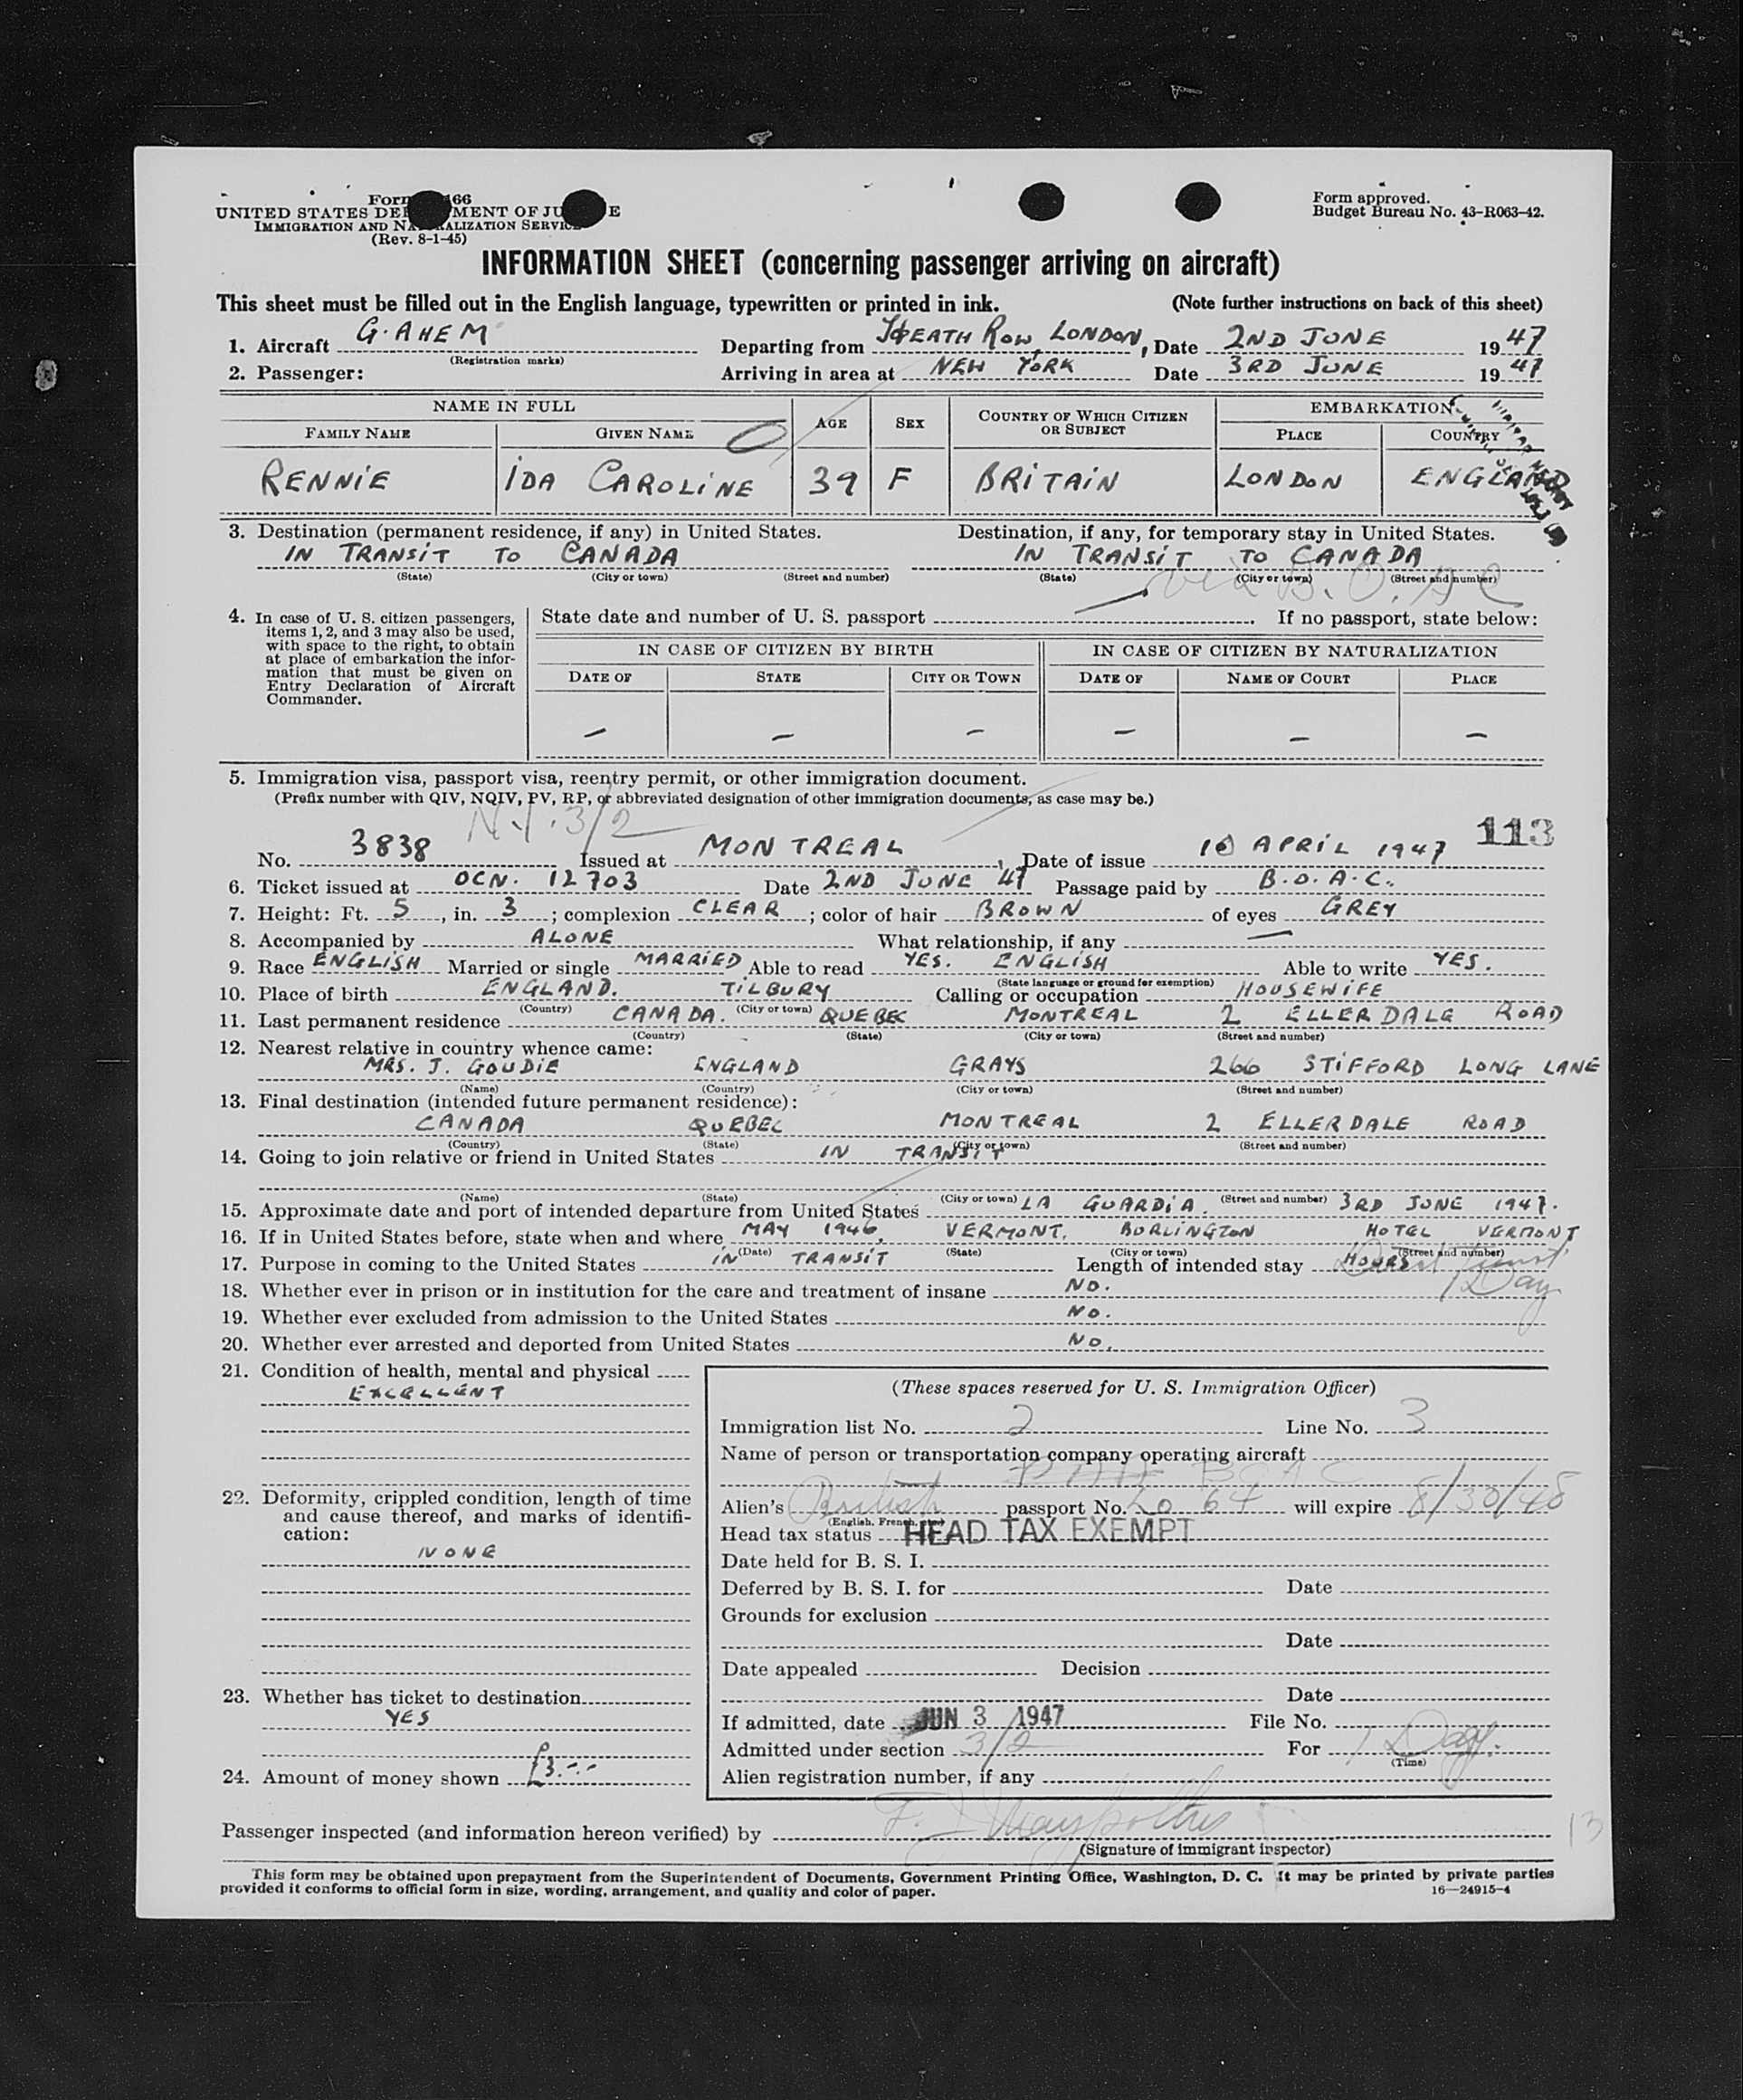 Form 66
UNITED STATES DEPARTMENT OF JUSTICE
IMMIGRATION AND NATURALIZATION SERVICE
(Rev. 8-1-45)
Form approved.
Budget Bureau No. 43-R063-42.
INFORMATION SHEET (concerning passenger arriving on aircraft)
This sheet must be filled out in the English language, typewritten or printed in ink. (Note further instructions on back of this sheet)
1. Aircraft G·AHEM Departing from HEATH ROW, LONDON, Date 2ND JUNE 1947
(Registration marks)
2. Passenger: Arriving in area at NEW YORK Date 3RD JUNE 1947
NAME IN FULL AGE SEX COUNTRY OF WHICH CITIZEN OR SUBJECT EMBARKATION
FAMILY NAME GIVEN NAME PLACE COUNTRY
RENNIE IDA CAROLINE 39 F BRITAIN LONDON ENGLAND
3. Destination (permanent residence, if any) in United States. Destination, if any, for temporary stay in United States.
IN TRANSIT TO CANADA IN TRANSIT TO CANADA
(State) (City or town) (Street and number) (State) (City or town) (Street and number)
via B.O.AC
4. In case of U. S. citizen passengers, items 1, 2, and 3 may also be used, with space to the right, to obtain at place of embarkation the information that must be given on Entry Declaration of Aircraft Commander.
State date and number of U. S. passport — . If no passport, state below:
IN CASE OF CITIZEN BY BIRTH IN CASE OF CITIZEN BY NATURALIZATION
DATE OF STATE CITY OR TOWN DATE OF NAME OF COURT PLACE
— — — — — —
5. Immigration visa, passport visa, reentry permit, or other immigration document.
(Prefix number with QIV, NQIV, PV, RP, or abbreviated designation of other immigration documents, as case may be.)
N.I. 3/2
113
No. 3838 Issued at MONTREAL, Date of issue 10 APRIL 1947
6. Ticket issued at OCN. 12703 Date 2ND JUNE 47 Passage paid by B.O.A.C.
7. Height: Ft. 5, in. 3; complexion CLEAR; color of hair BROWN of eyes GREY
8. Accompanied by ALONE What relationship, if any —
9. Race ENGLISH Married or single MARRIED Able to read YES. ENGLISH Able to write YES.
(State language or ground for exemption)
10. Place of birth ENGLAND. TILBURY Calling or occupation HOUSEWIFE
(Country) (City or town)
11. Last permanent residence CANADA. QUEBEC MONTREAL 2 ELLERDALE ROAD
(Country) (State) (City or town) (Street and number)
12. Nearest relative in country whence came:
MRS. J. GOUDIE ENGLAND GRAYS 266 STIFFORD LONG LANE
(Name) (Country) (City or town) (Street and number)
13. Final destination (intended future permanent residence):
CANADA QUEBEC MONTREAL 2 ELLERDALE ROAD
(Country) (State) (City or town) (Street and number)
14. Going to join relative or friend in United States IN TRANSIT
(Name) (State) (City or town) (Street and number)
15. Approximate date and port of intended departure from United States LA GUARDIA. 3RD JUNE 1947.
16. If in United States before, state when and where MAY 1946, VERMONT, BURLINGTON HOTEL VERMONT
(Date) (State) (City or town) (Street and number)
17. Purpose in coming to the United States IN TRANSIT Length of intended stay HOURS
1 Day
18. Whether ever in prison or in institution for the care and treatment of insane NO.
19. Whether ever excluded from admission to the United States NO.
20. Whether ever arrested and deported from United States NO.
21. Condition of health, mental and physical
EXCELLENT
22. Deformity, crippled condition, length of time and cause thereof, and marks of identification:
NONE
23. Whether has ticket to destination
YES
24. Amount of money shown £3.--
(These spaces reserved for U. S. Immigration Officer)
Immigration list No. 2 Line No. 3
Name of person or transportation company operating aircraft
BOAC
Alien's British passport No. Lo 64 will expire 8/30/48
(English, French, etc.)
Head tax status HEAD TAX EXEMPT
Date held for B. S. I.
Deferred by B. S. I. for Date
Grounds for exclusion
Date
Date appealed Decision
Date
If admitted, date JUN 3 1947 File No.
Admitted under section 3/2 For 1 Day.
(Time)
Alien registration number, if any
Passenger inspected (and information hereon verified) by
(Signature of immigrant inspector)
13
This form may be obtained upon prepayment from the Superintendent of Documents, Government Printing Office, Washington, D. C. It may be printed by private parties
provided it conforms to official form in size, wording, arrangement, and quality and color of paper. 16—24915-4